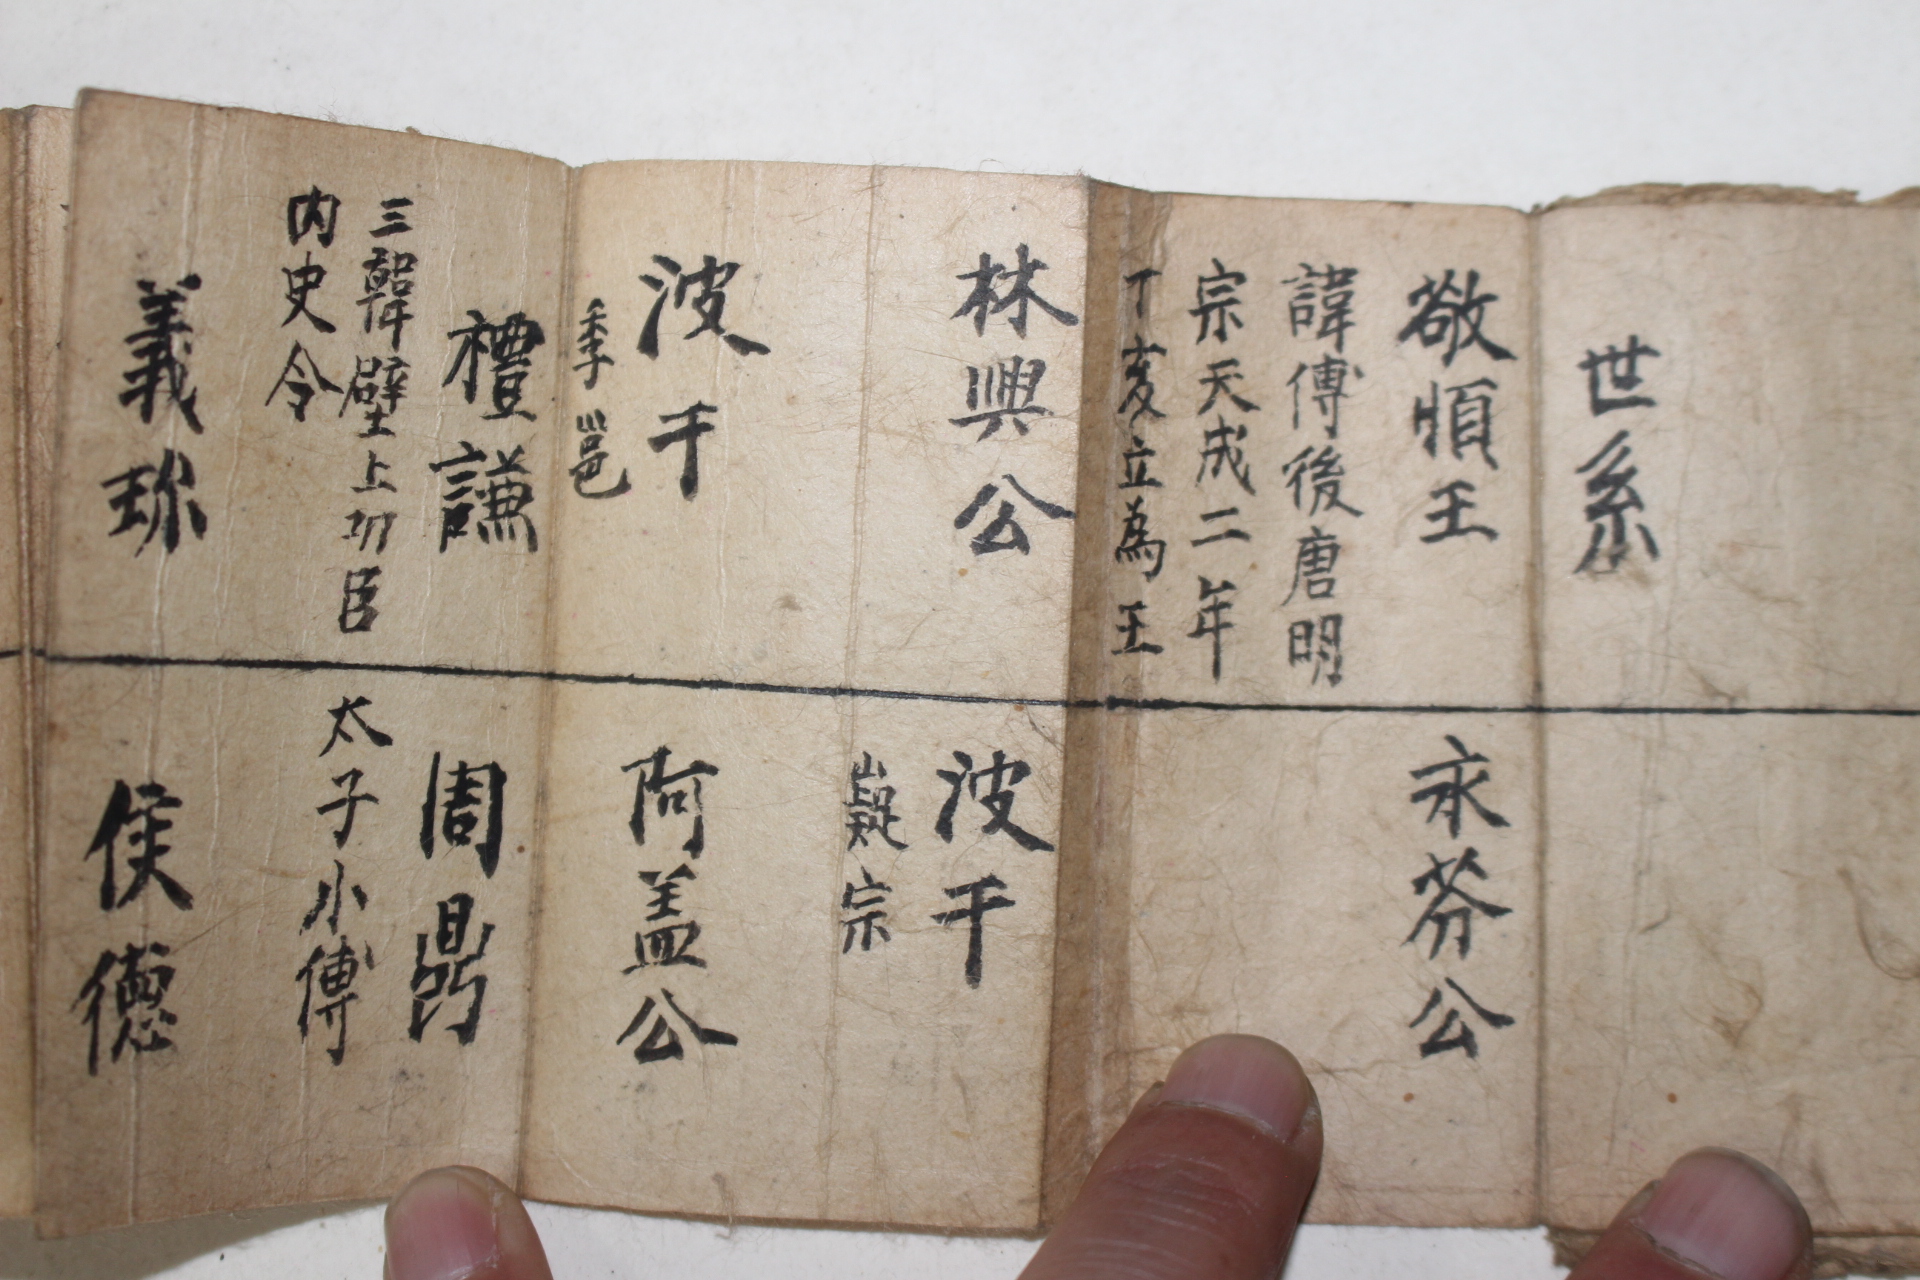 世系
敬順王
諱傅後唐明
宗天成二年
丁亥立為王
林興公
波干
季邕
禮謙
三韓壁上功臣
内史令
義珎
永芬公
波干
嶷宗
阿盖公
周鼎
太子小傅
侯德